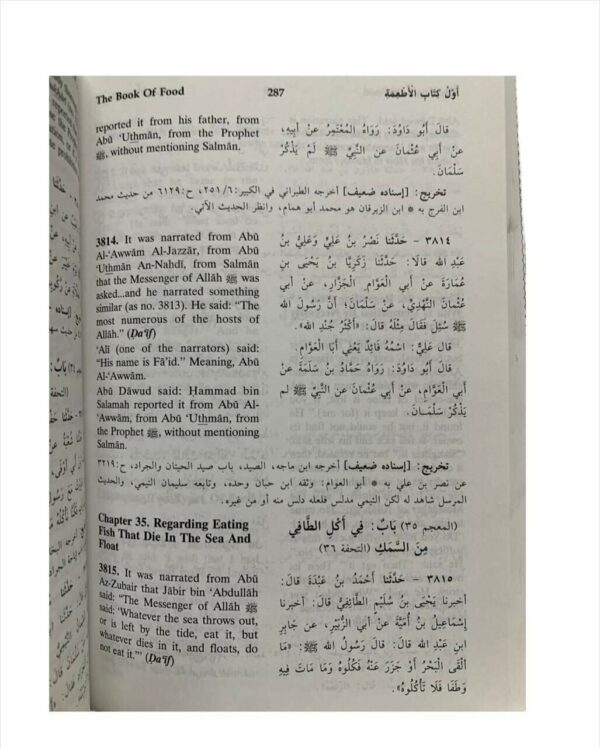 The Book Of Food 287 أَوَّلُ كِتَابِ الْأَطْعِمَةِ
reported it from his father, from
Abū 'Uthmān, from the Prophet
ﷺ, without mentioning Salmān.
قَالَ أَبُو دَاوُدَ: رَوَاهُ الْمُعْتَمِرُ عنْ أَبِيهِ،
عنْ أَبِي عُثْمانَ عن النَّبِيِّ ﷺ لَمْ يَذْكُرْ
سَلْمَانَ.
تخريج: [إسناده ضعيف] أخرجه الطبراني في الكبير: ٦/ ٢٥١، ح: ٦١٢٩ من حديث محمد
ابن الفرج به * ابن الزبرقان هو محمد أبو همام، وانظر الحديث الآتي.
3814. It was narrated from Abū
Al-'Awwām Al-Jazzār, from Abū
'Uthmān An-Nahdī, from Salmān
that the Messenger of Allāh ﷺ was
asked...and he narrated something
similar (as no. 3813). He said: "The
most numerous of the hosts of
Allāh." (Ḍa'īf)
'Alī (one of the narrators) said:
"His name is Fā'id." Meaning, Abū
Al-'Awwām.
Abū Dāwud said: Ḥammad bin
Salamah reported it from Abū Al-
'Awwām, from Abū 'Uthmān, from
the Prophet ﷺ, without mentioning
Salmān.
٣٨١٤ - حَدَّثَنا نَصْرُ بنُ عَلِيٍّ وَعَلِيُّ بنُ
عَبْدِ الله قَالَا: حَدَّثَنا زَكَرِيَّا بنُ يَحْيَى بنِ
عُمَارَةَ عنْ أَبِي الْعَوَّامِ الْجَزَّارِ، عنْ أَبِي
عُثْمَانَ النَّهْدِيِّ، عنْ سَلْمَانَ؛ أَنَّ رَسُولَ الله
ﷺ سُئِلَ فَقَالَ مِثْلَهُ قَالَ: «أَكْثَرُ جُنْدِ الله».
قال عَلِيٌّ: اسْمُهُ فَائِدٌ يَعْنِي أَبَا الْعَوَّامِ.
قَالَ أَبُو دَاوُدَ: رَوَاهُ حَمَّادُ بنُ سَلَمَةَ عنْ
أَبِي الْعَوَّامِ، عنْ أَبِي عُثْمانَ عن النَّبِيِّ ﷺ لم
يَذْكُرْ سَلْمَانَ.
تخريج: [إسناده ضعيف] أخرجه ابن ماجه، الصيد، باب صيد الحيتان والجراد، ح: ٣٢١٩
عن نصر بن علي به * أبو العوام: وثقه ابن حبان وحده، وتابعه سليمان التيمي، والحديث
المرسل شاهد له لكن التيمي مدلس فلعله دلس منه أو من غيره.
Chapter 35. Regarding Eating
Fish That Die In The Sea And
Float
(المعجم ٣٥) بَابٌ: فِي أَكْلِ الطَّافِي
مِنَ السَّمَكِ (التحفة ٣٦)
3815. It was narrated from Abū
Az-Zubair that Jābir bin 'Abdullāh
said: "The Messenger of Allāh ﷺ
said: 'Whatever the sea throws out,
or is left by the tide, eat it, but
whatever dies in it, and floats, do
not eat it.'" (Ḍa'īf)
٣٨١٥ - حَدَّثَنا أَحْمَدُ بنُ عَبْدَةَ قَالَ:
أخبرنا يَحْيَى بنُ سُلَيْمٍ الطَّائِفِيُّ قَالَ: أخبرنا
إِسْمَاعِيلُ بنُ أُمَيَّةَ عنْ أَبِي الزُّبَيْرِ، عن جَابِرِ
ابنِ عَبْدِ الله قَالَ: قَالَ رَسُولُ الله ﷺ: «مَا
أَلْقَى الْبَحْرُ أَوْ جَزَرَ عَنْهُ فَكُلُوهُ وَمَا مَاتَ فِيهِ
وَطَفَا فَلَا تَأْكُلُوهُ».